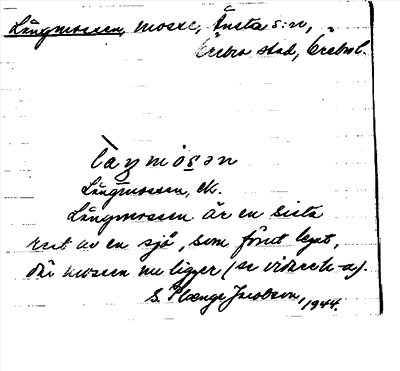 Långmossen, mosse, Ånsta s:n,
Örebro stad, Örebro l.
Långmossen, ek.
Långmossen är en sista
rest av en sjö, som förut legat,
där mossen nu ligger (se vidare k-a).
S. Jacobson, 1944.